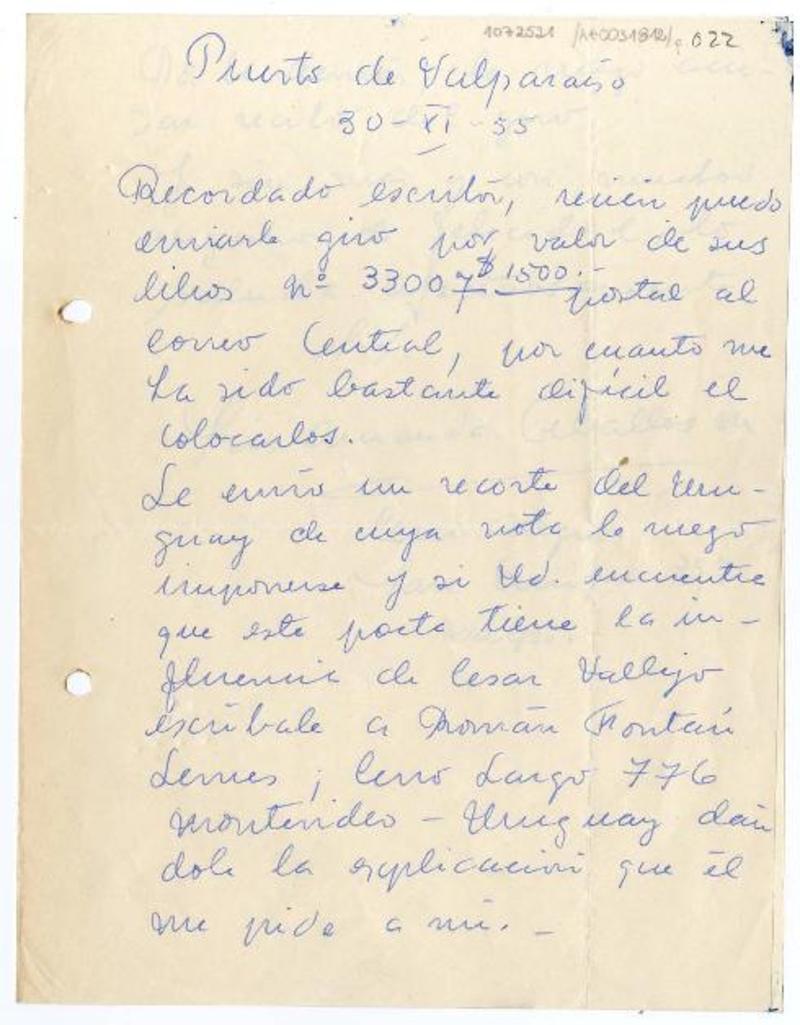 1072521 /AE0031812/ 022
Puerto de Valparaíso
30-XI-55
Recordado escritor, recien puedo
enviarle giro por valor de sus
libros Nº 33007 $1500.- postal al
correo Central, por cuanto me
ha sido bastante difícil el
colocarlos.
Le envío un recorte del Uru-
guay de cuya nota le ruego
imponerse y si Ud. encuentra
que este poeta tiene la in-
fluencia de Cesar Vallejo
escríbale a Román Fontán
Lemes; Cerro Largo 776
Montevideo - Uruguay dán
dole la explicación que él
me pide a mi. -